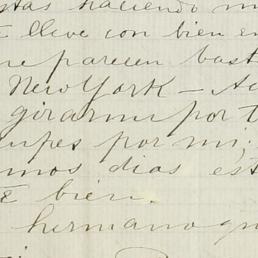 stas haciendo m
E lleve con bien en
me parecen bast
New York — Ac
girarme por t
cupes por mi,
mos dias est
E bien.
hermano qu